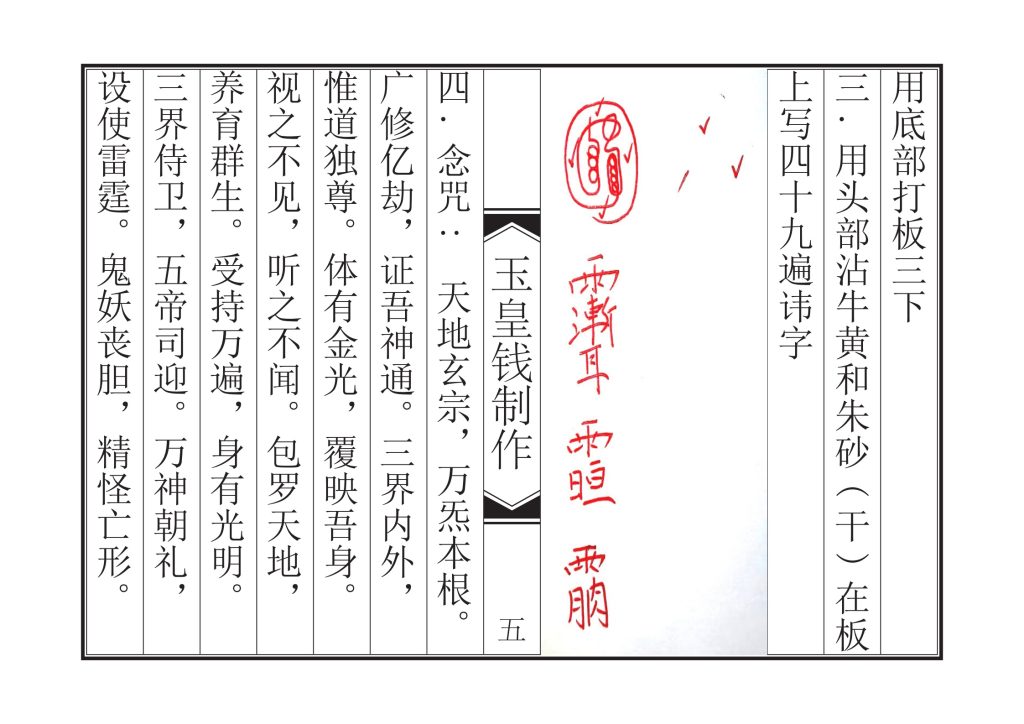 用底部打板三下
三．用头部沾牛黄和朱砂（干）在板
上写四十九遍讳字
玉皇钱制作
五
四．念咒： 天地玄宗，万炁本根。
广修亿劫，证吾神通。三界内外，
惟道独尊。体有金光，覆映吾身。
视之不见，听之不闻。包罗天地，
养育群生。受持万遍，身有光明。
三界侍卫，五帝司迎。万神朝礼，
设使雷霆。鬼妖丧胆，精怪亡形。